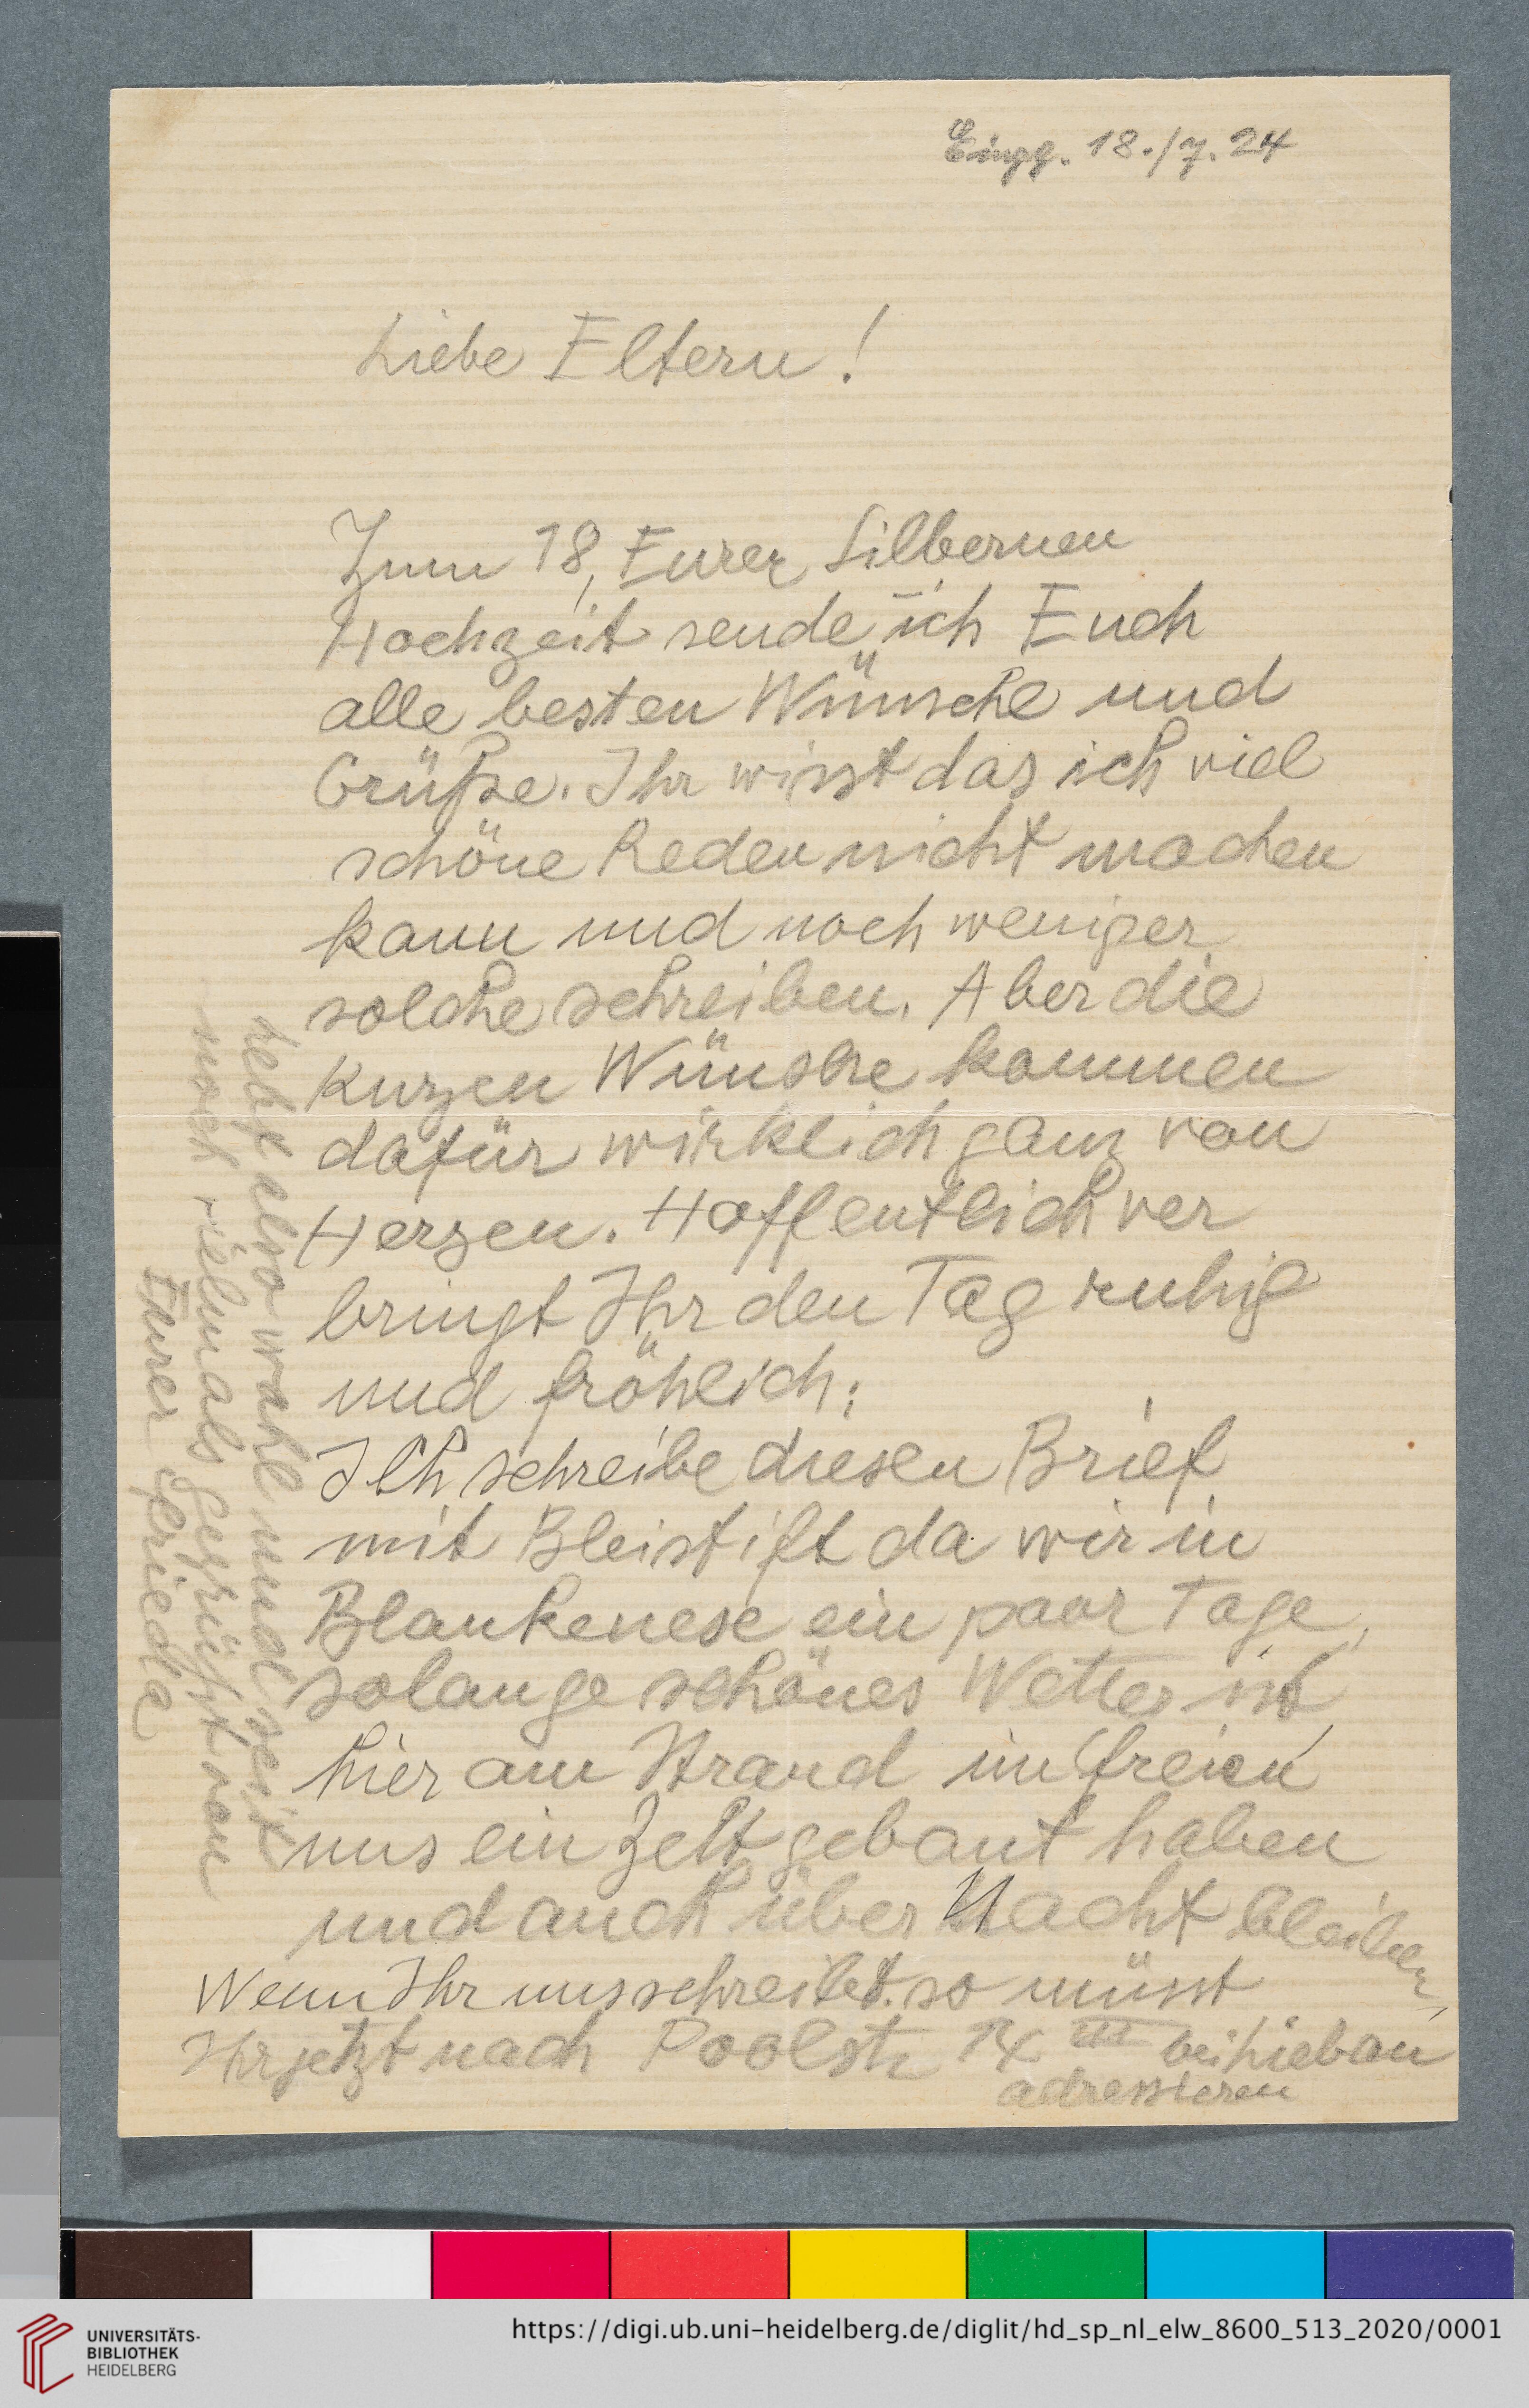 Eingg. 18./7. 24
Liebe Eltern!
Zum 18, Eurer Silbernen
Hochzeit sende ich Euch
alle besten Wünsche und
Grüße. Ihr wisst das ich viel
schöne Reden nicht machen
kann und noch weniger
solche schreiben. Aber die
Kurzen Wünsche kommen
dafür wirklich ganz von
Herzen. Hoffentlich ver
bringt Ihr den Tag ruhig
und fröhlich.
Ich schreibe diesen Brief
mit Bleistift da wir in
Blankenese ein paar Tage,
solange schönes Wetter ist,
hier am Strand im freien
uns ein Zelt gebaut haben
und auch über Nacht bleiben,
Wenn Ihr uns schreibet. so müsst
Ihr jetzt nach Poolstr 14 III bei Liebau
adressieren
Lebt also wohl und seit
noch vielmals Gegrüßt von
Eurer Frieda
UNIVERSITÄTS-
BIBLIOTHEK
HEIDELBERG
https://digi.ub.uni-heidelberg.de/diglit/hd_sp_nl_elw_8600_513_2020/0001